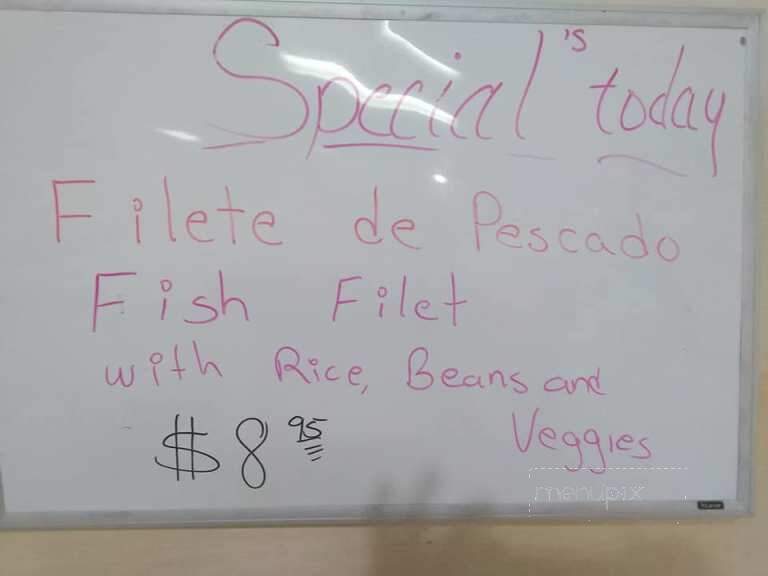 Special's today
Filete de Pescado
Fish Filet
with Rice, Beans and
Veggies
$8 95
menupix